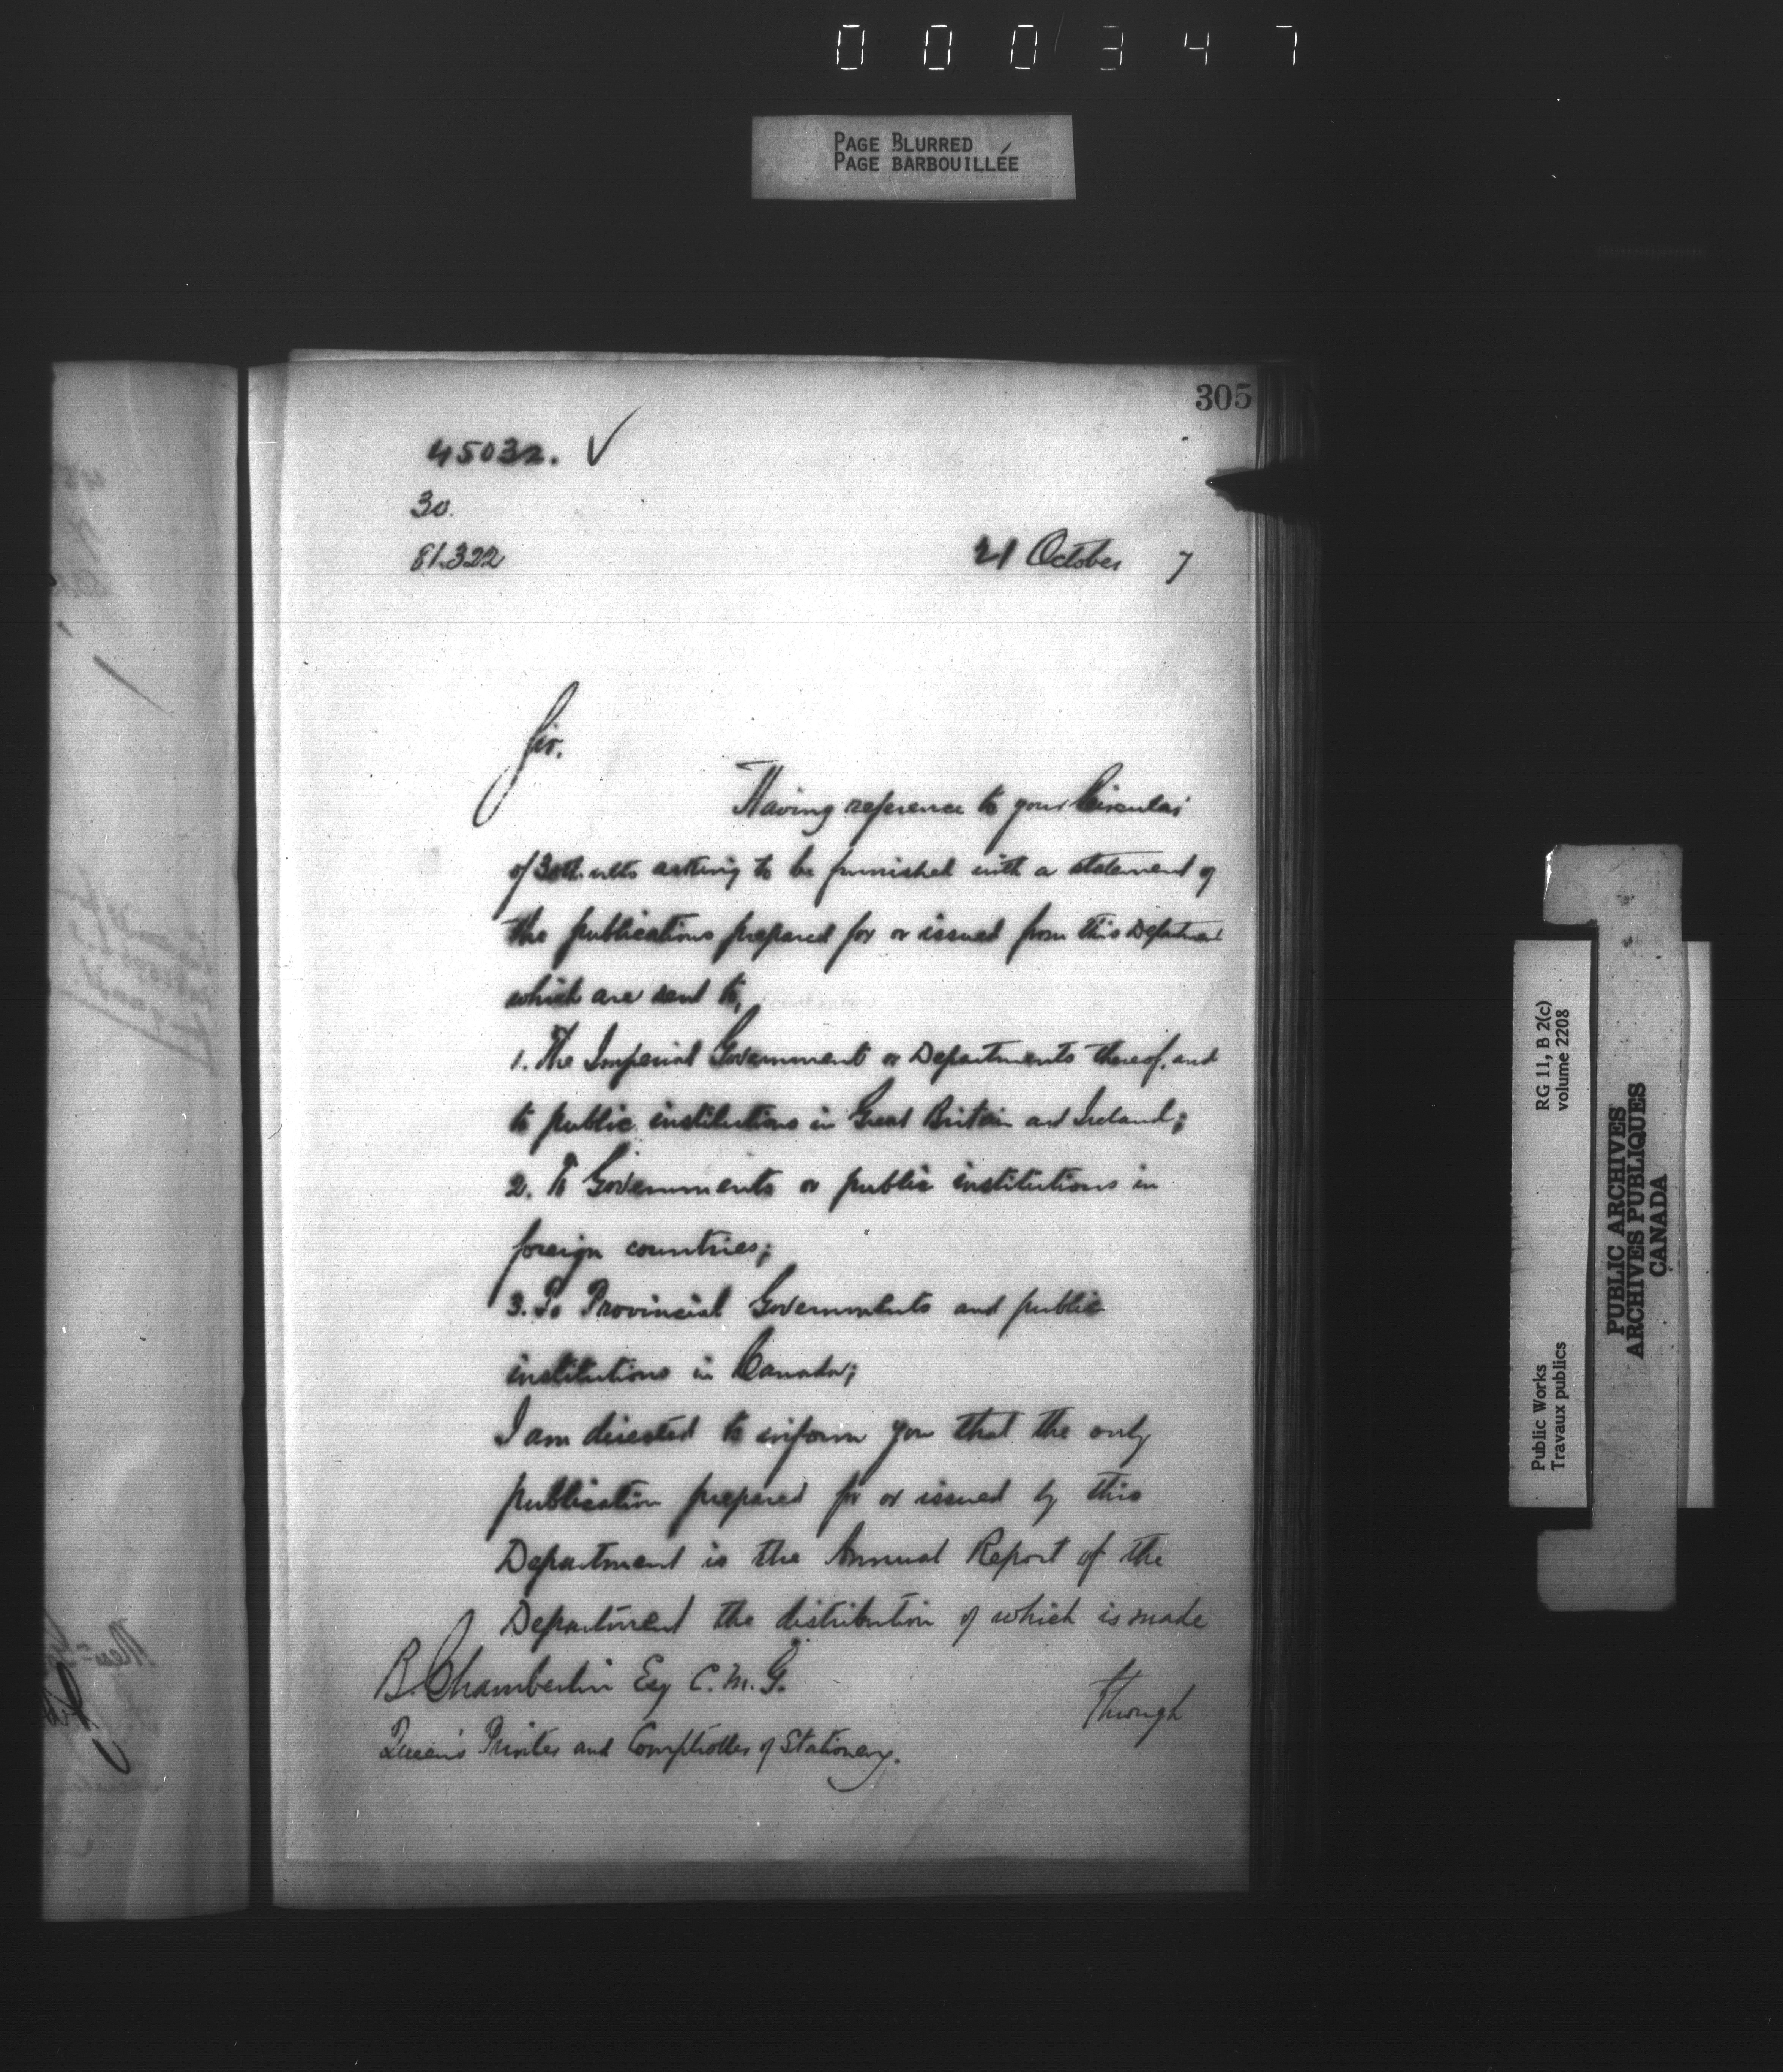 000347
PAGE BLURRED
PAGE BARBOUILLÉE
305
45032. ✓
30.
81.322
21 October 7
Sir.
Having reference to your Circular
of 30th ulto asking to be furnished with a statement of
the publications prepared for or issued from this Department
which are sent to,
1. The Imperial Government or Departments thereof, and
to public institutions in Great Britain and Ireland;
2. To Governments or public institutions in
foreign countries;
3. To Provincial Governments and public
institutions in Canada;
I am directed to inform you that the only
publication prepared for or issued by this
Department is the Annual Report of the
Department the distribution of which is made
through
B. Chamberlin Esq C.M.G.
Queen's Printer and Comptroller of Stationery.
Public Works
Travaux publics
RG 11, B 2(c)
volume 2208
PUBLIC ARCHIVES
ARCHIVES PUBLIQUES
CANADA